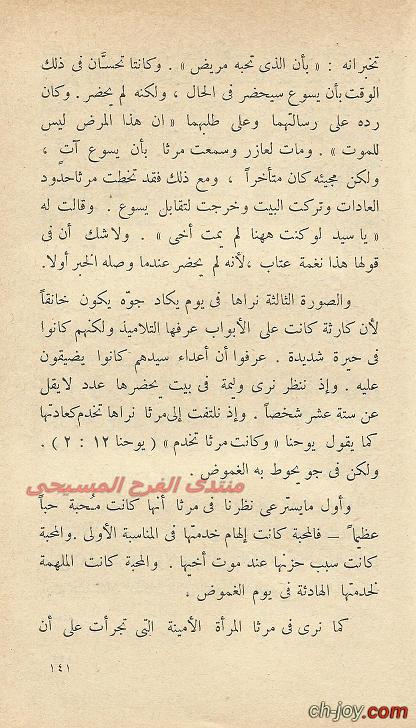 تخبرانه : « بأن الذى تحبه مريض » . وكانتا تحسان فى ذلك
الوقت بأن يسوع سيحضر فى الحال ، ولكنه لم يحضر . وكان
رده على رسالتهما وعلى طلبهما « ان هذا المرض ليس
للموت » . ومات لعازر وسمعت مرثا بأن يسوع آت ،
ولكن مجيئه كان متأخراً ، ومع ذلك فقد تخطت مرثا حدود
العادات وتركت البيت وخرجت لتقابل يسوع . وقالت له
« يا سيد لو كنت ههنا لم يمت أخى » . ولاشك أن فى
قولها هذا نغمة عتاب ، لأنه لم يحضر عندما وصله الخبر أولا.
والصورة الثالثة نراها فى يوم يكاد جوّه يكون خانقاً
لأن كارثة كانت على الأبواب عرفها التلاميذ ولكنهم كانوا
فى حيرة شديدة . عرفوا أن أعداء سيدهم كانوا يضيقون
عليه . وإذ ننتظر نرى وليمة فى بيت يحضرها عدد لايقل
عن ستة عشر شخصاً . وإذ نلتفت إلى مرثا نراها تخدم كعادتها
كما يقول يوحنا « وكانت مرثا تخدم » ( يوحنا ١٢ : ٢ ) .
ولكن فى جو يحوط به الغموض .
منتدى الفرح المسيحى
وأول مايسترعى نظرنا فى مرثا أنها كانت مُحبة حباً
عظيماً – فالمحبة كانت إلهام خدمتها فى المناسبة الأولى . والمحبة
كانت سبب حزنها عند موت أخيها . والمحبة كانت الملهمة
لخدمتها الهادئة فى يوم الغموض .
كما نرى فى مرثا المرأة الأمينة التى تجرأت على أن
١٤١
ch-joy.com